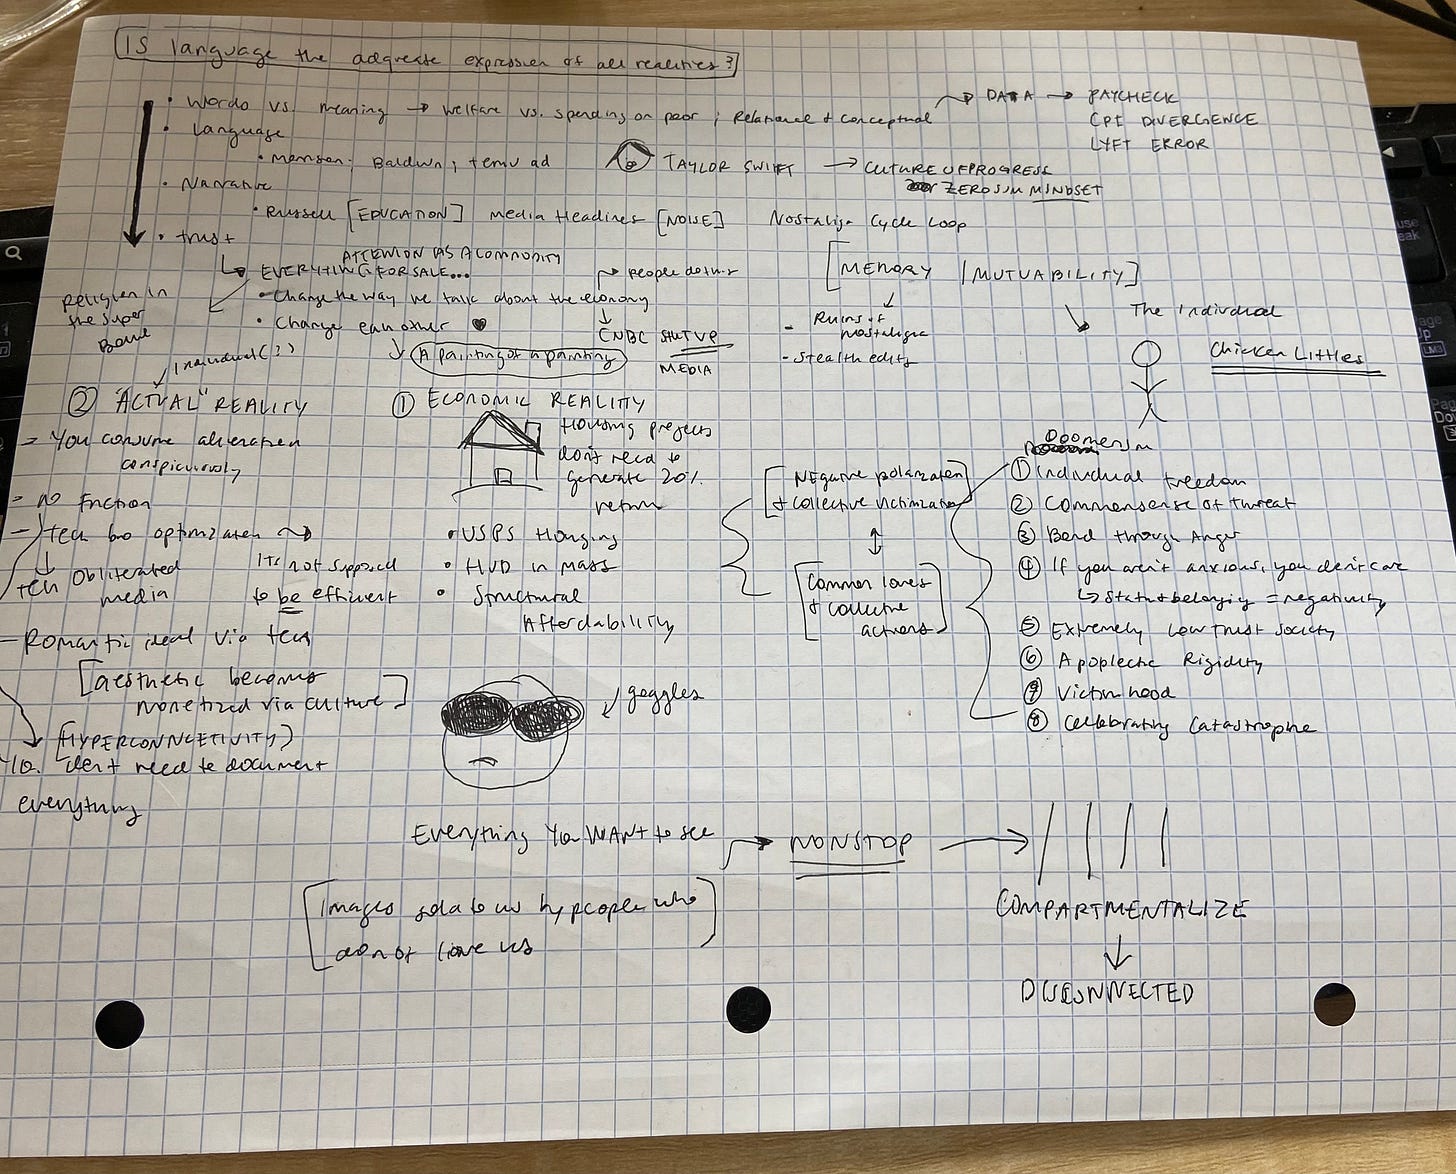 IS language the adequate expression of all realities?
• Words vs. meaning → welfare vs. spending on poor ; Relational + conceptual
DATA → PAYCHECK
CPI DIVERGENCE
LYFT ERROR
• Language
• ; Baldwin ; temu ad
TAYLOR SWIFT → CUTURE OF PROGRESS
ZEROSUM MINDSET
• Narrative
• Russell [EDUCATION] Media Headlines [NOISE] Nostalgia Cycle Loop
• trust
ATTENTION AS A COMMODITY
EVERYTHING FOR SALE...
• Change the way we talk about the economy
• Change each other
people do this
CNBC
MEDIA
A painting of a painting
[MEMORY / MUTUABILITY]
- Ruins of nostalgia
- Stealth edits
The Individual
Chicken Littles
Religion in
the Super
Bowl
Individual(?)
② "ACTUAL" REALITY
> You consume alienation
conspicuously
> no friction
- tech bro optimization
It's not supposed
to be efficient
tech Obliterated
media
- Romantic ideal via tech
[aesthetic becomes
monetized via culture]
(HYPERCONNCETIVITY)
don't need to document
everything
① ECONOMIC REALITY
Housing projects
don't need to
generate 20%
return
• USPS Housing
• HUD in mass
• Structural
Affordability
[Negative polarization
+ collective victimization]
[Common loves
+ collective
actions]
Doomerism
① Individual freedom
② Commonsense of threat
③ Bond through Anger
④ If you aren't anxious, you don't care
↳ status + belonging = negativity
⑤ Extremely Low Trust Society
⑥ Apoplectic Rigidity
⑦ Victimhood
⑧ Celebrating Catastrophe
goggles
Everything You WANT to see → NONSTOP →
[Images sold to us by people who
do not love us]
COMPARTMENTALIZE
↓
DISCONNECTED